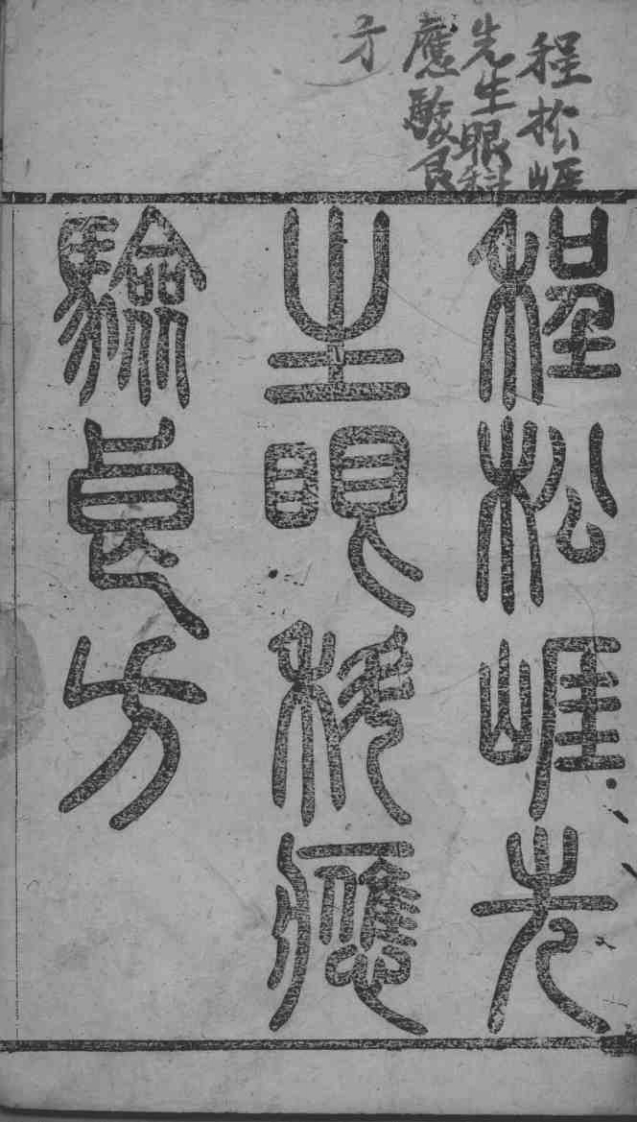 程松崖
先生眼科
應驗良
方
程松崖先
生眼科應
驗良方